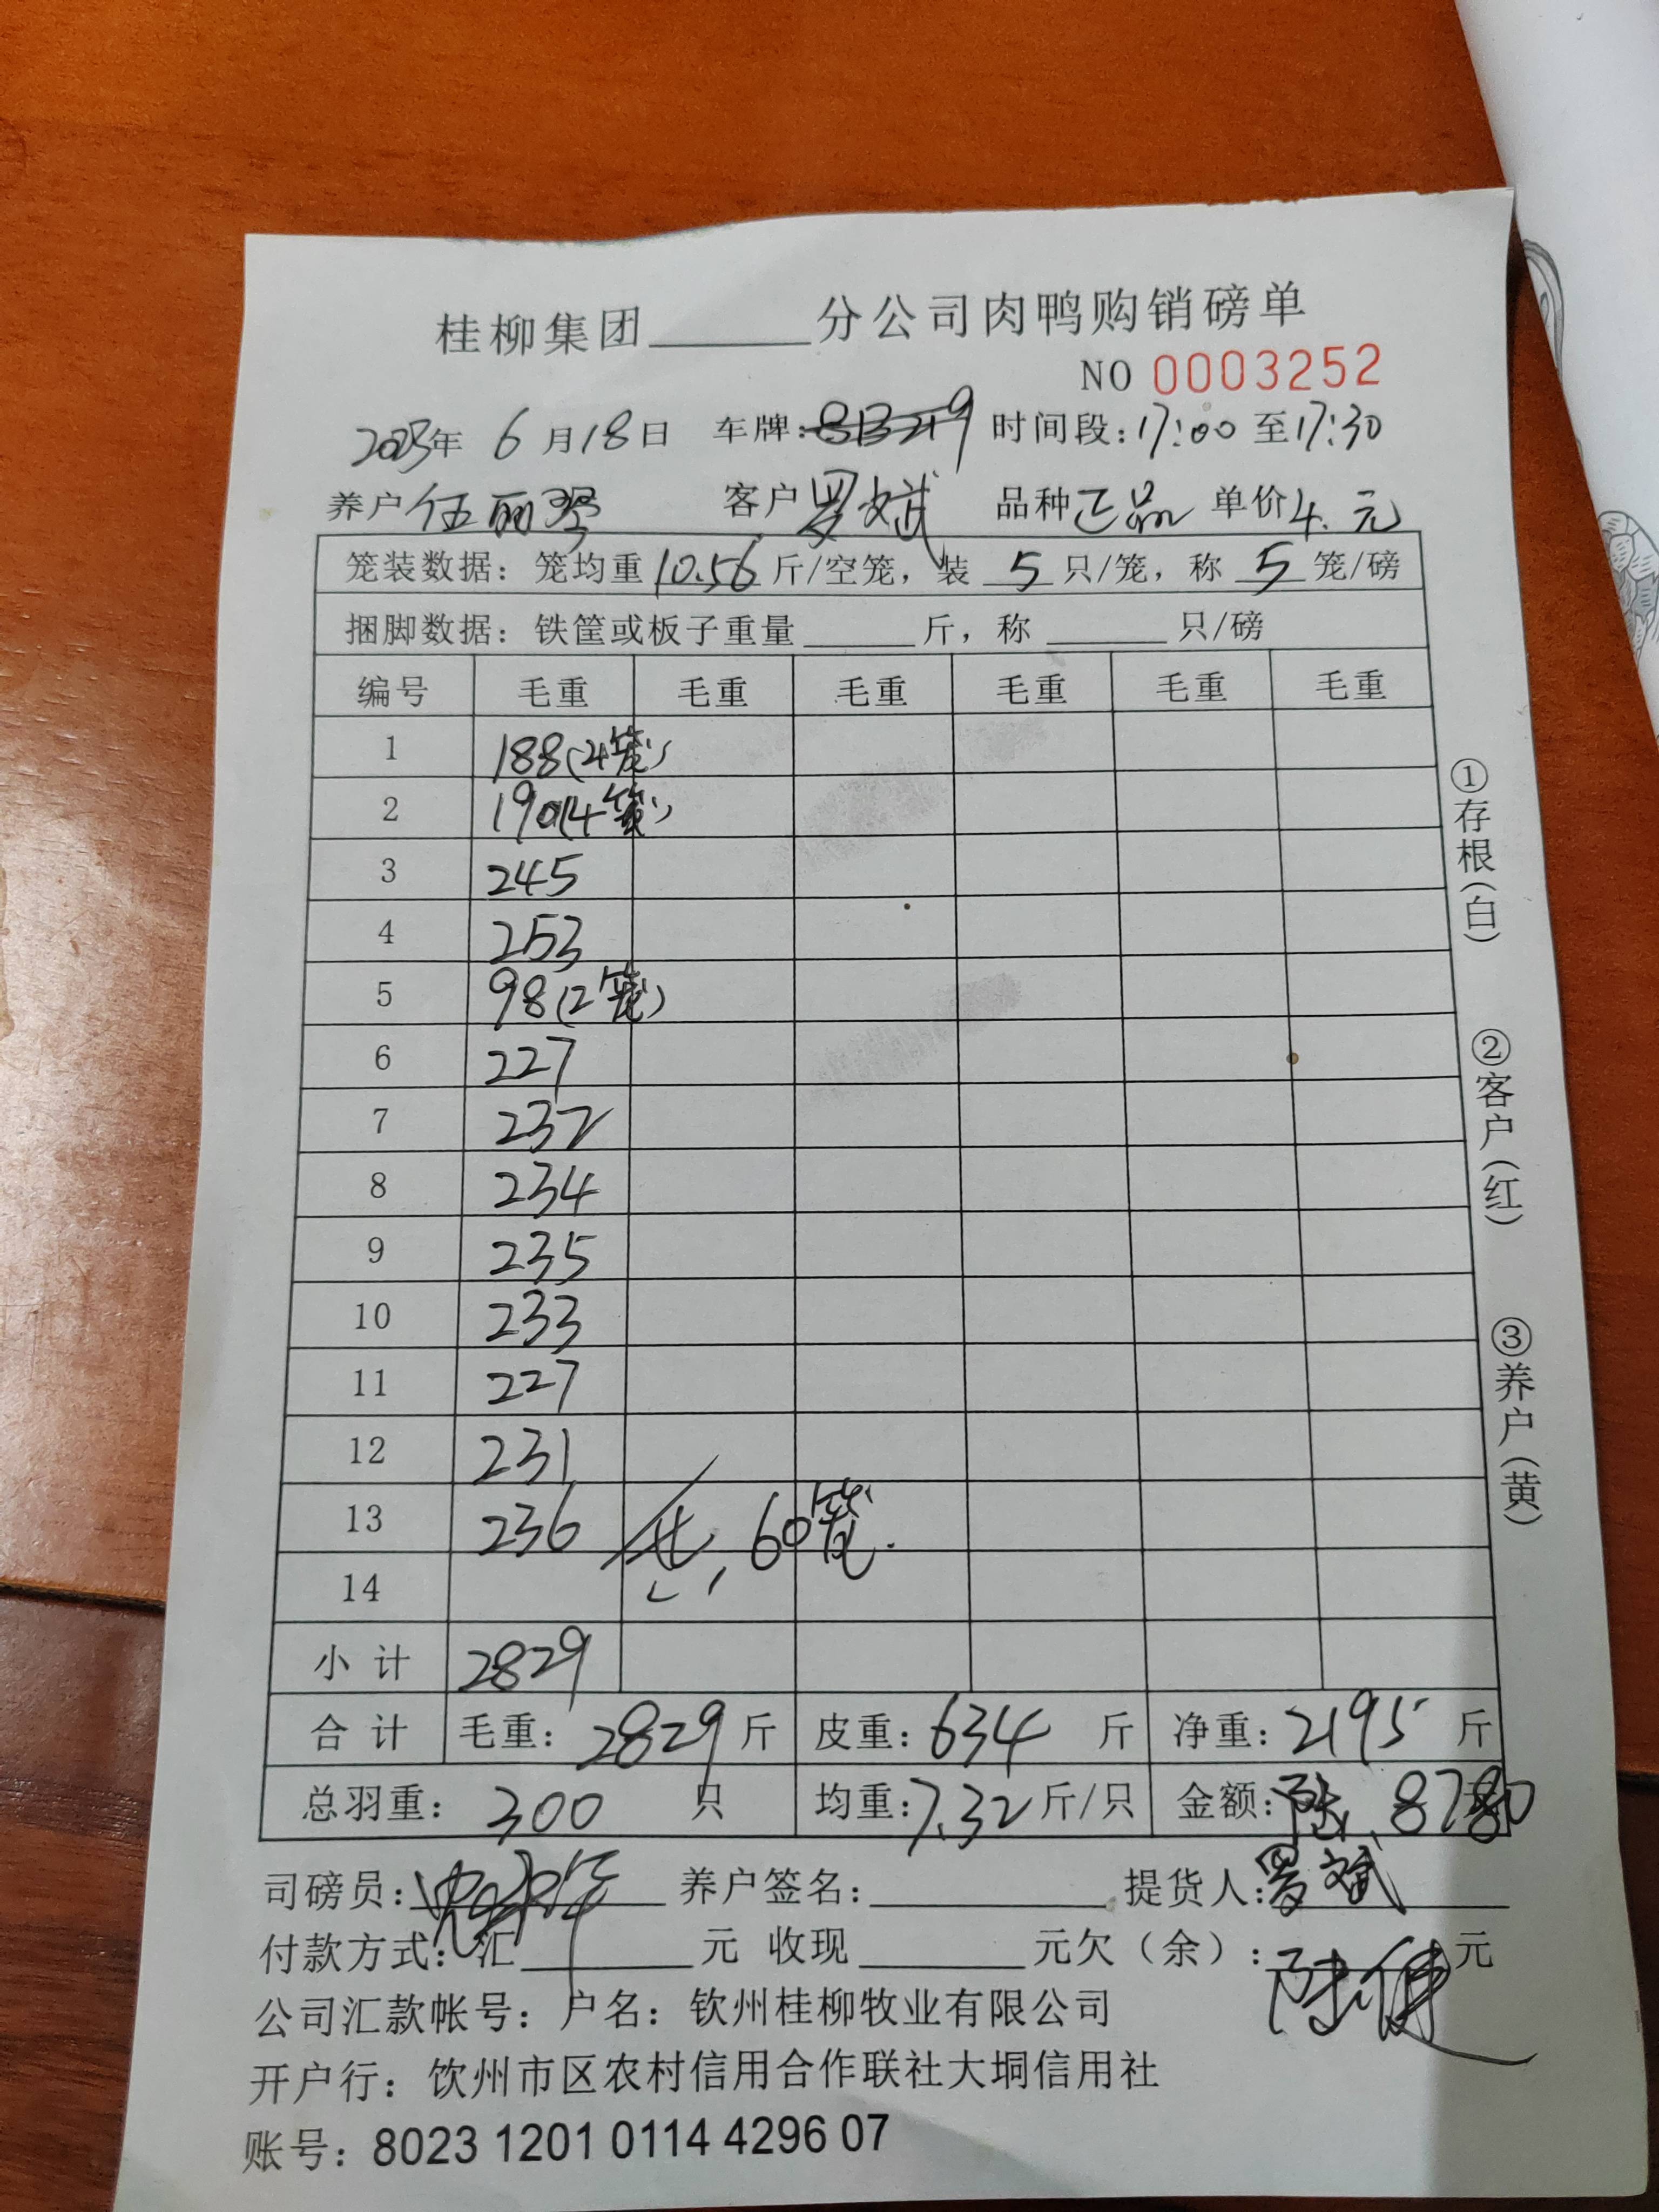 桂柳集团______分公司肉鸭购销磅单
NO 0003252
2023年 6 月18日 车牌: 时间段:17:00 至17:30
养户伍丽 客户罗斌 品种正品 单价4.元
笼装数据：笼均重10.56斤/空笼，装 5 只/笼，称 5 笼/磅
捆脚数据：铁筐或板子重量______斤，称______只/磅
编号 毛重 毛重 毛重 毛重 毛重 毛重
1 188(4笼)
2 190(4笼)
3 245
4 253
5 98(2笼)
6 227
7 232
8 234
9 235
10 233
11 227
12 231
13 236 共,60笼.
14
小 计 2829
合 计 毛重：2829斤 皮重：634 斤 净重：2195 斤
总羽重：300 只 均重：7.32斤/只 金额： 8780
司磅员： 养户签名：______ 提货人：罗斌
付款方式：汇______元 收现______元欠（余）：陆健元
公司汇款帐号：户名：钦州桂柳牧业有限公司
开户行：饮州市区农村信用合作联社大垌信用社
账号：8023 1201 0114 4296 07
①存根(白)
②客户(红)
③养户(黄)